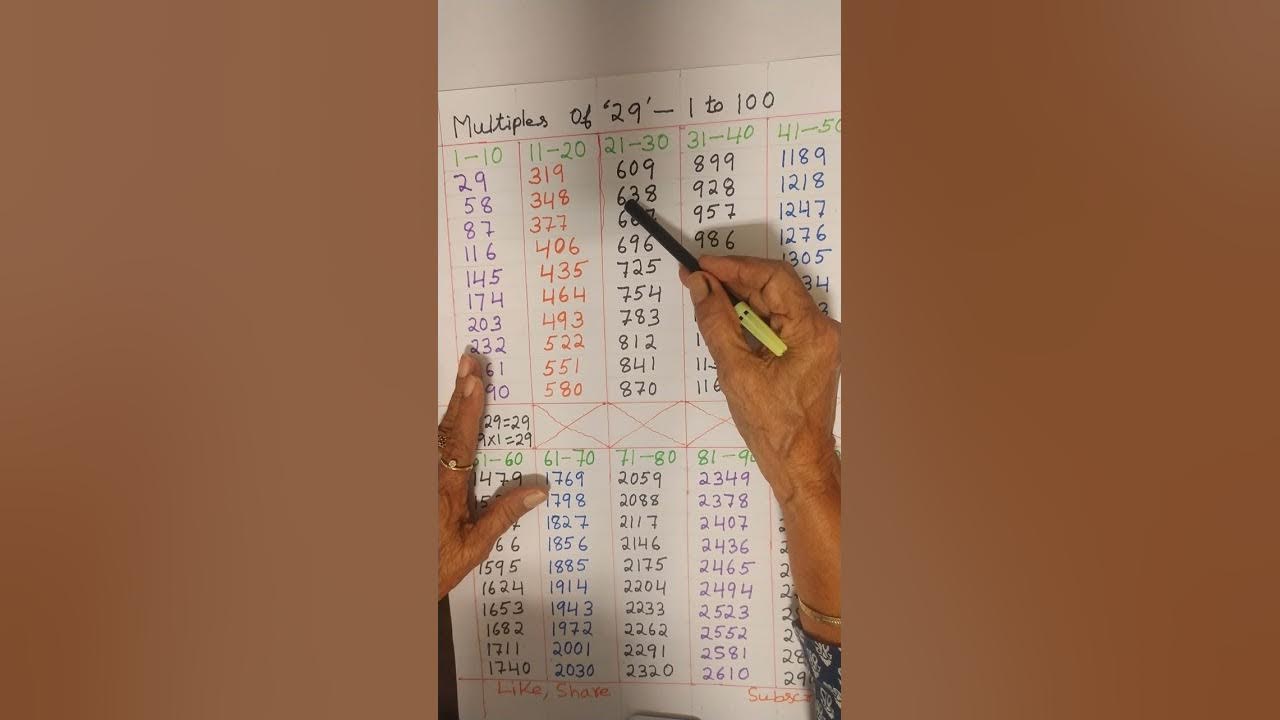 Multiples Of '29' – 1 to 100
1–10 11–20 21–30 31–40 41–50
29 319 609 899 1189
58 348 638 928 1218
87 377 957 1247
116 406 696 986 1276
145 435 725 1305
174 464 754
203 493 783
232 522 812
551 841
580 870
29=29
9x1=29
61–70 71–80
1479 1769 2059 2349
1798 2088 2378
1827 2117 2407
1856 2146 2436
1595 1885 2175 2465
1624 1914 2204 2494
1653 1943 2233 2523
1682 1972 2262 2552
1711 2001 2291 2581
1740 2030 2320 2610
Like, Share